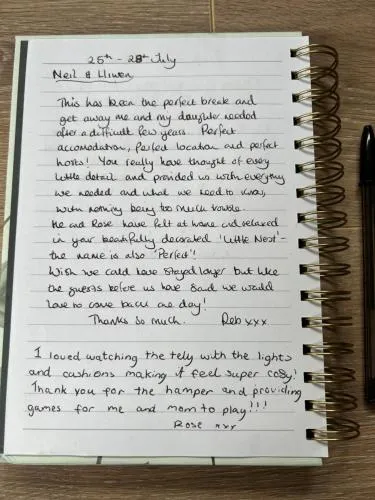 25th - 28th July
Neil & Llinen
This has been the perfect break and
get away me and my daughter needed
after a difficult few years. Perfect
accomodation, Perfect location and perfect
hosts! You really have thought of every
little detail and provided us with everything
we needed and what we need to know,
with nothing being too much trouble.
Me and Rose have felt at home and relaxed
in your beautifully decorated 'Little Nest' -
the name is also 'Perfect'!
Wish we could have stayed longer but like
the guests before us have said we would
love to come back one day!
Thanks so much. Reb xxx
I loved watching the telly with the lights
and cushions making it feel super cosy!
Thank you for the hamper and providing
games for me and mom to play!!!
Rose xxx